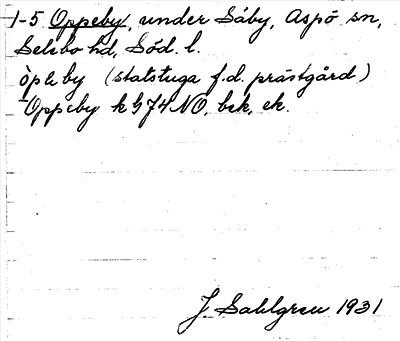 1-5 Oppeby, under Säby, Aspö sn,
Selebo hd, Söd. l.
(statstuga f.d. prästgård)
Oppeby k G 74 NO, bsk, ek.
J. Sahlgren 1931